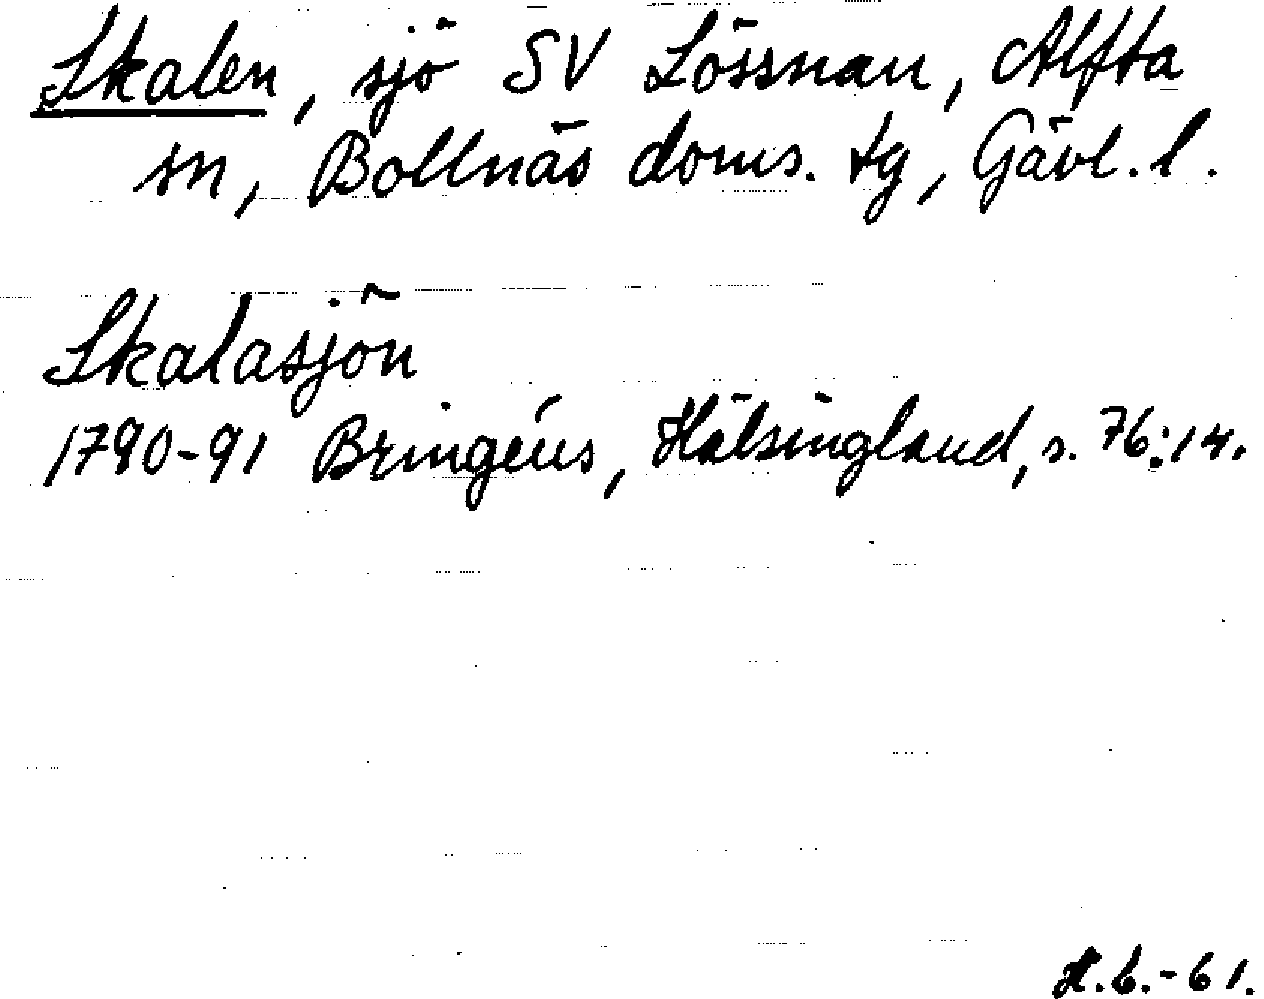 Skalen, sjö SV Lössnan, Alfta
sn, Bollnäs doms. tg, Gävl. l.
Skalasjön
1790-91 Bringéus, Hälsingland, s. 76:14.
H.b.-61.